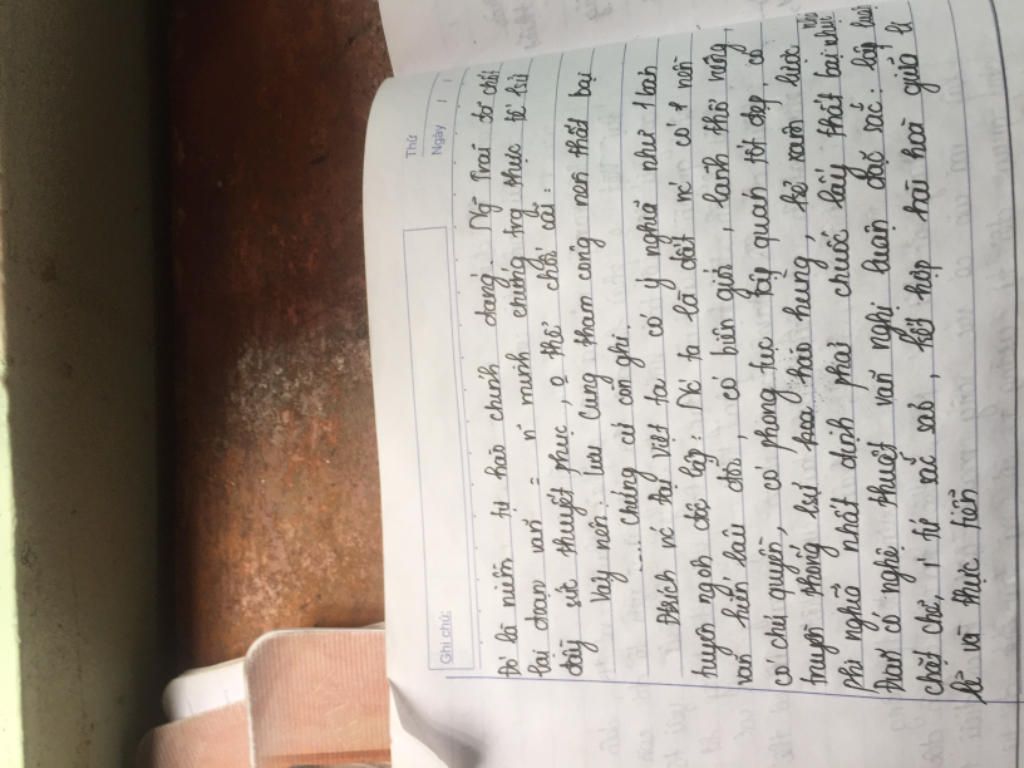 Thứ
Ngày / /
Ghi chú:
Đó là niềm tự hào chính đáng. Ng Trãi đã chốt
lại đoạn văn = n minh chứng trg thực tế lsử
đầy sức thuyết phục, o thể chối cãi:
Vậy nên: Lưu Cung tham công nên thất bại
.... chứng cứ còn ghi.
Đtrích nc đại việt ta có ý nghĩa như 1 bản
tuyên ngôn độc lập: Nc ta là đất nc có 1 nền
văn hiến lâu đời, có biên giới, lãnh thổ riêng,
có chủ quyền, có phong tục tập quán tốt đẹp, có
truyền thống lsử hào hùng, kẻ xâm lược
phi nghĩa nhất định phải chuốc lấy thất bại
Đtrích có nghệ thuật văn nghị luận đặc sắc: lập luận
chặt chẽ, ý tứ sắc sảo, kết hợp hài hoà giữa lí
lẽ và thực tiễn